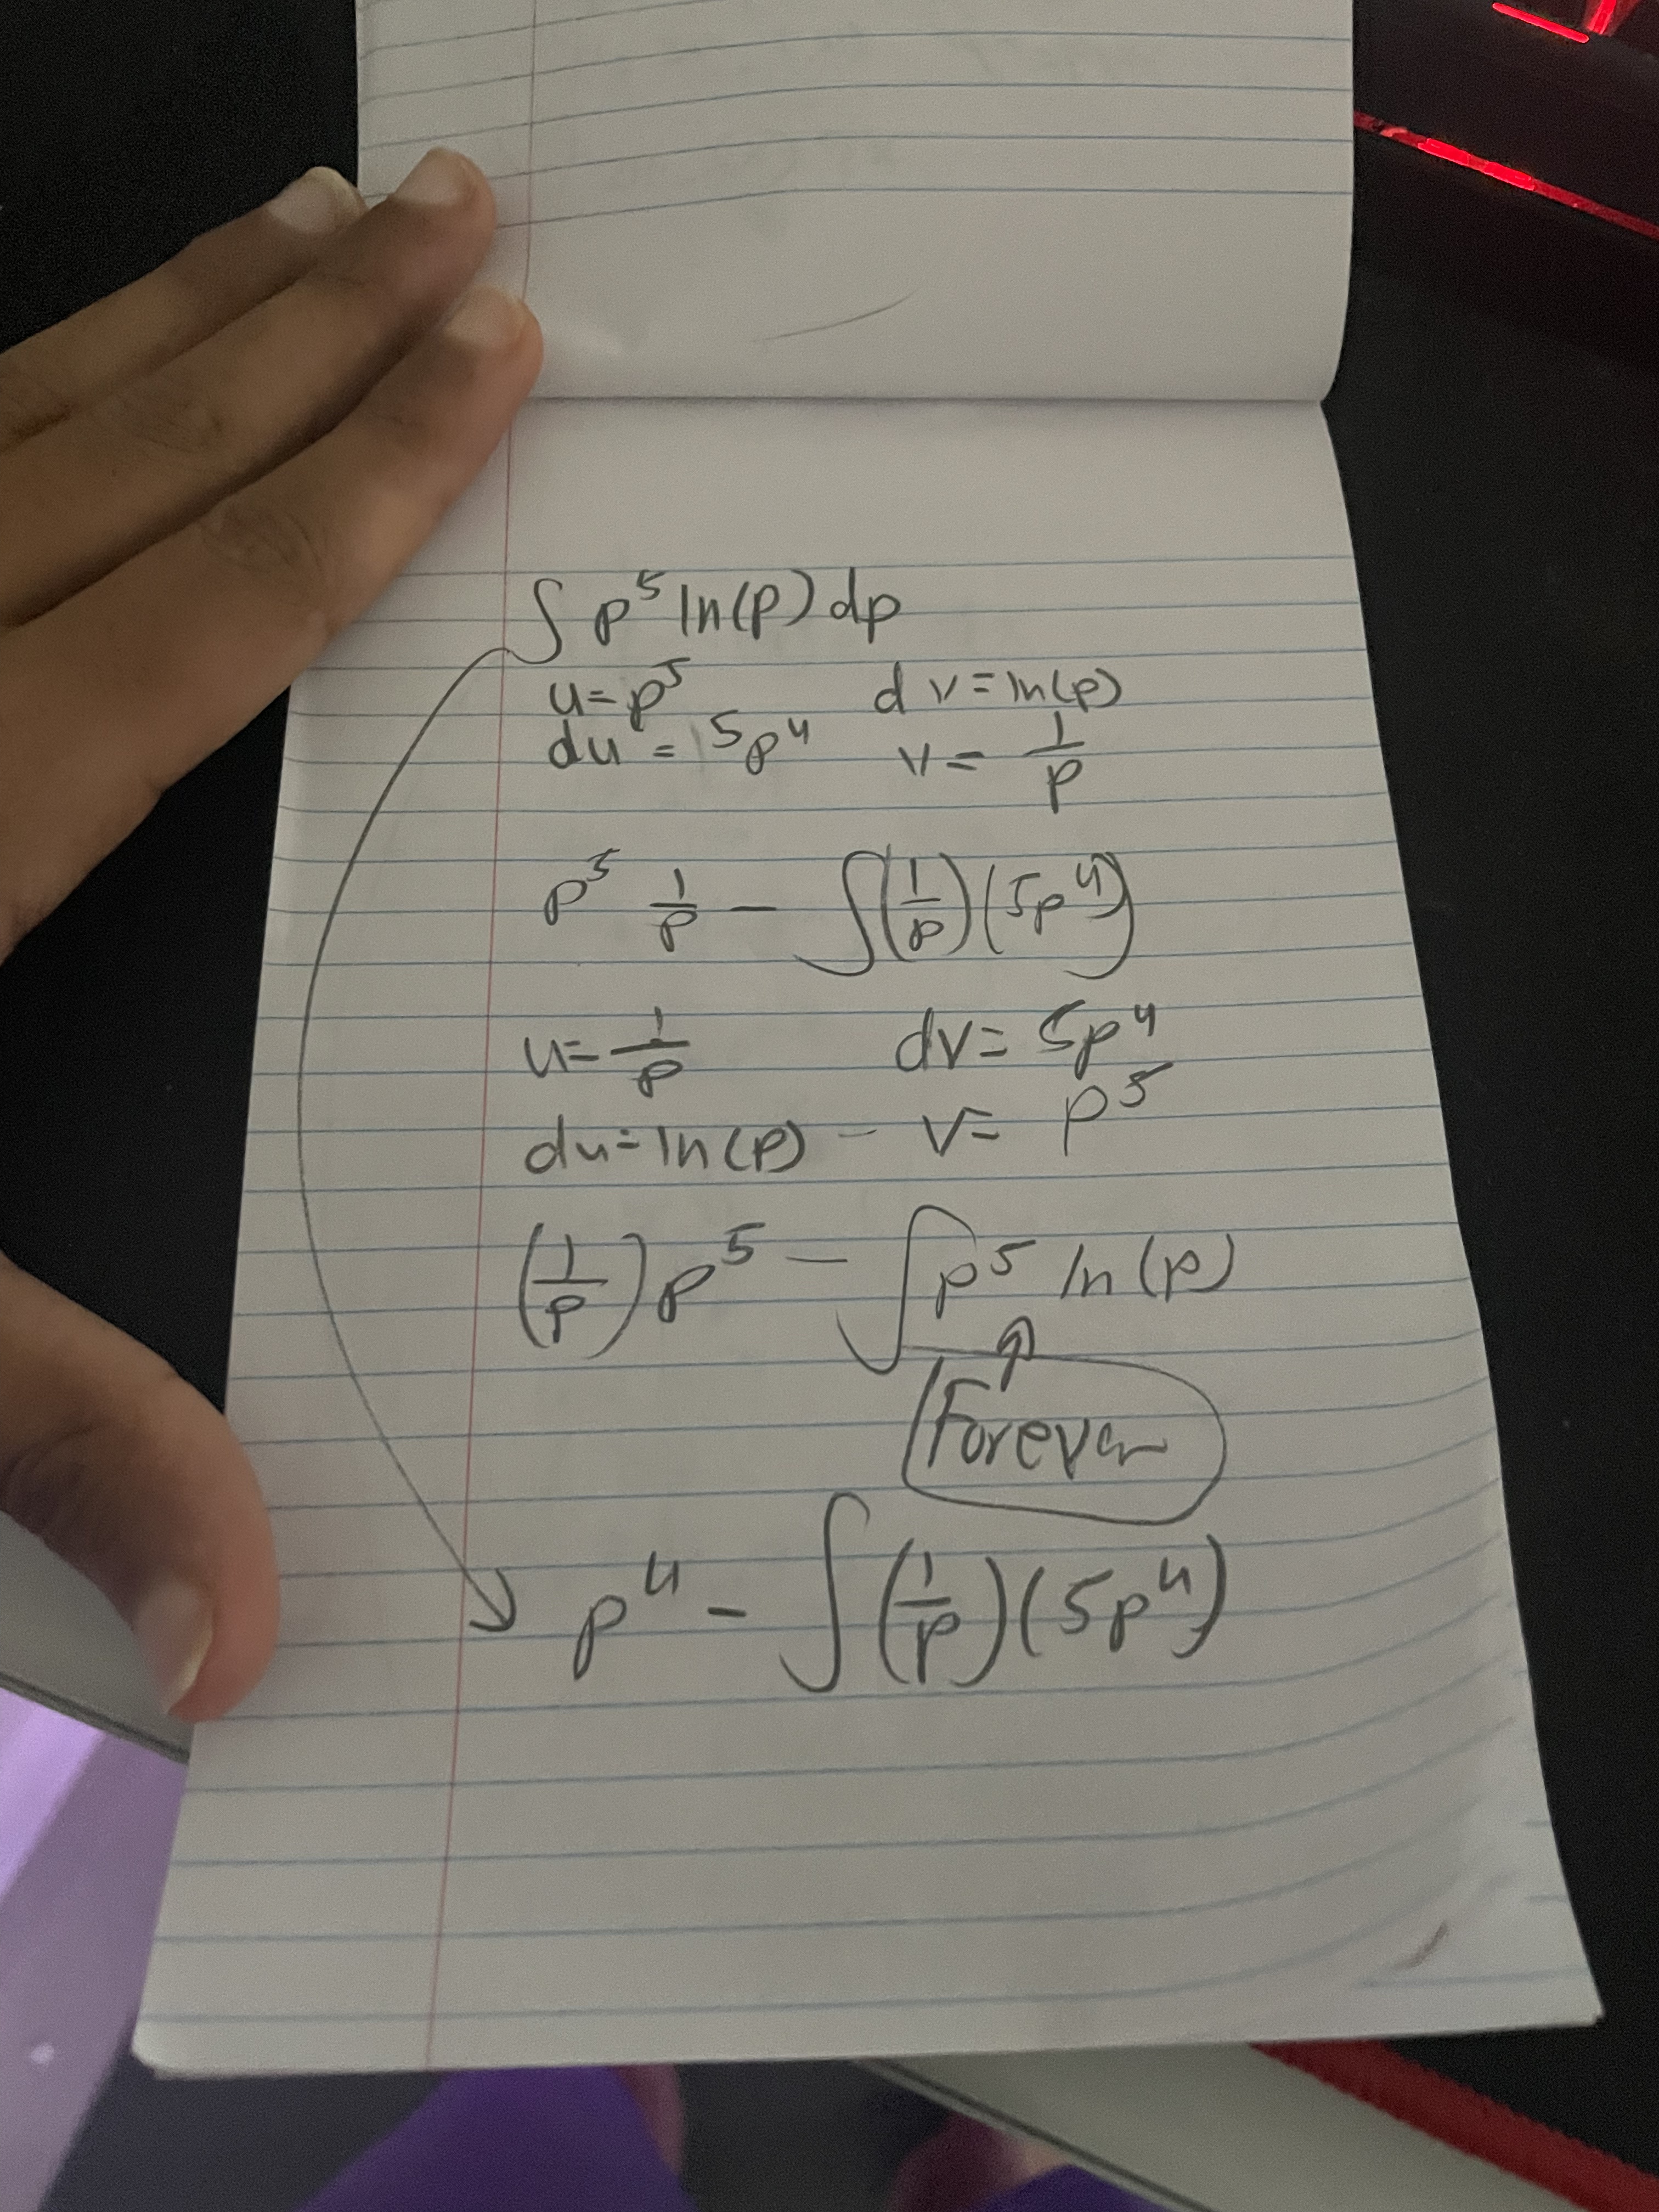 ∫ p⁵ ln(p) dp
u = p⁵ dv = ln(p)
du = 5p⁴ v = 1/p
p⁵ 1/p − ∫(1/p)(5p⁴)
u = 1/p dv = 5p⁴
du = ln(p) − v = p⁵
(1/p) p⁵ − ∫ p⁵ ln(p)
Forever
p⁴ − ∫(1/p)(5p⁴)